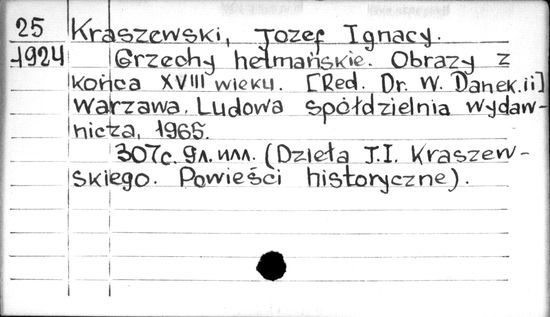 25 Kraszewski, Jozef Ignacy.
1924 Grzechy hetmańskie. Obrazy z
końca XVIII wieku. [Red. Dr. W. Danek.ii]
Warzawa, Ludowa spółdzielnia wydaw-
nicza, 1965.
307c. 9л. илл. (Dzieła J.I. Kraszew-
skiego. Powieści historyczne).